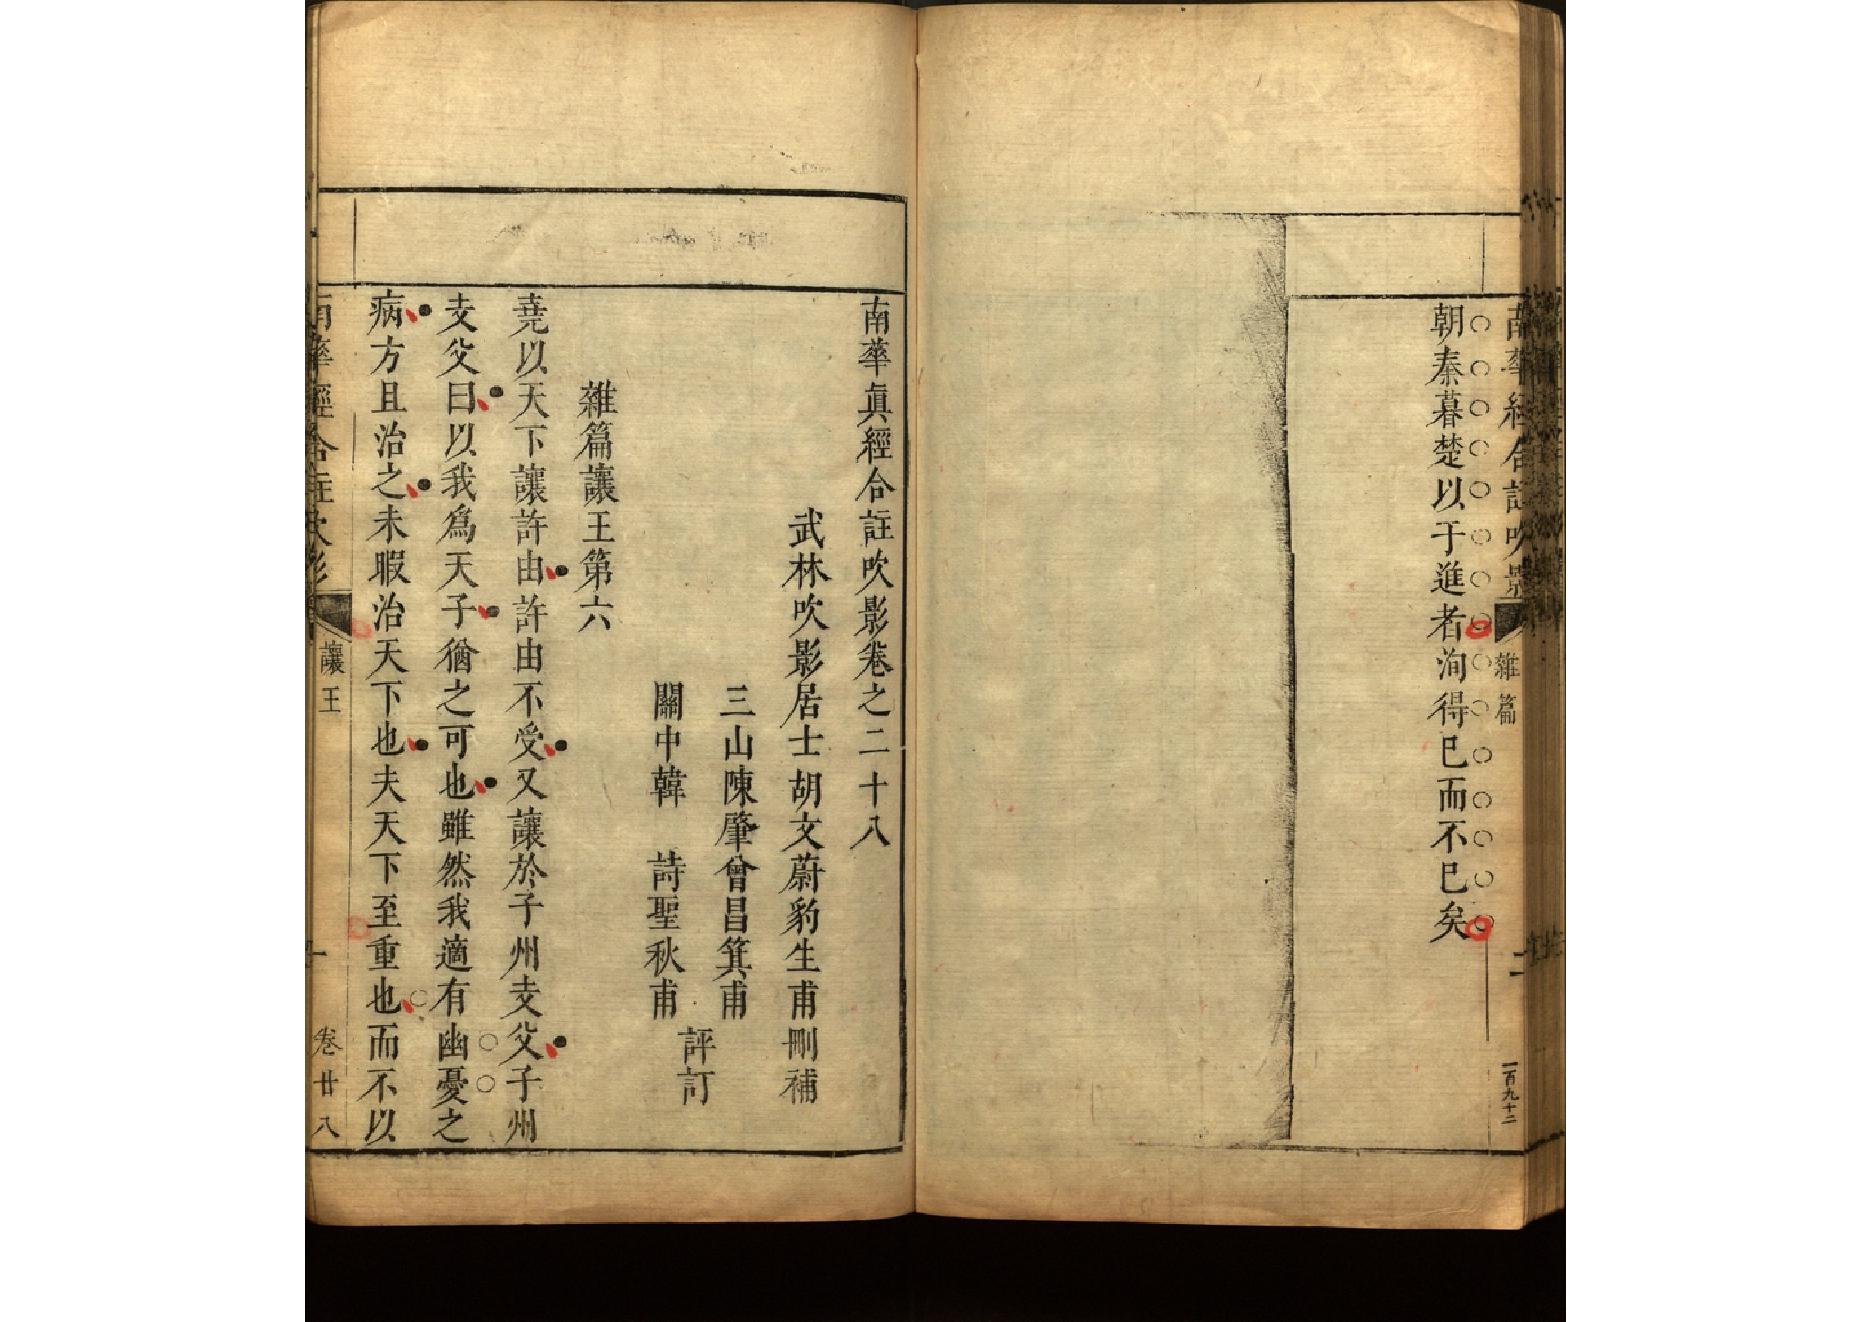 南華經合註吹影
雜篇
二
一百九十二
朝秦暮楚以于進者洵得已而不已矣
南華真經合註吹影卷之二十八
武林吹影居士胡文蔚豹生甫刪補
三山陳肇曾昌箕甫
關中韓　詩聖秋甫
評訂
雜篇讓王第六
堯以天下讓許由許由不受又讓於子州支父子州
支父曰以我爲天子猶之可也雖然我適有幽憂之
病方且治之未暇治天下也夫天下至重也而不以
南華經合註吹影
讓王
一
卷廿八